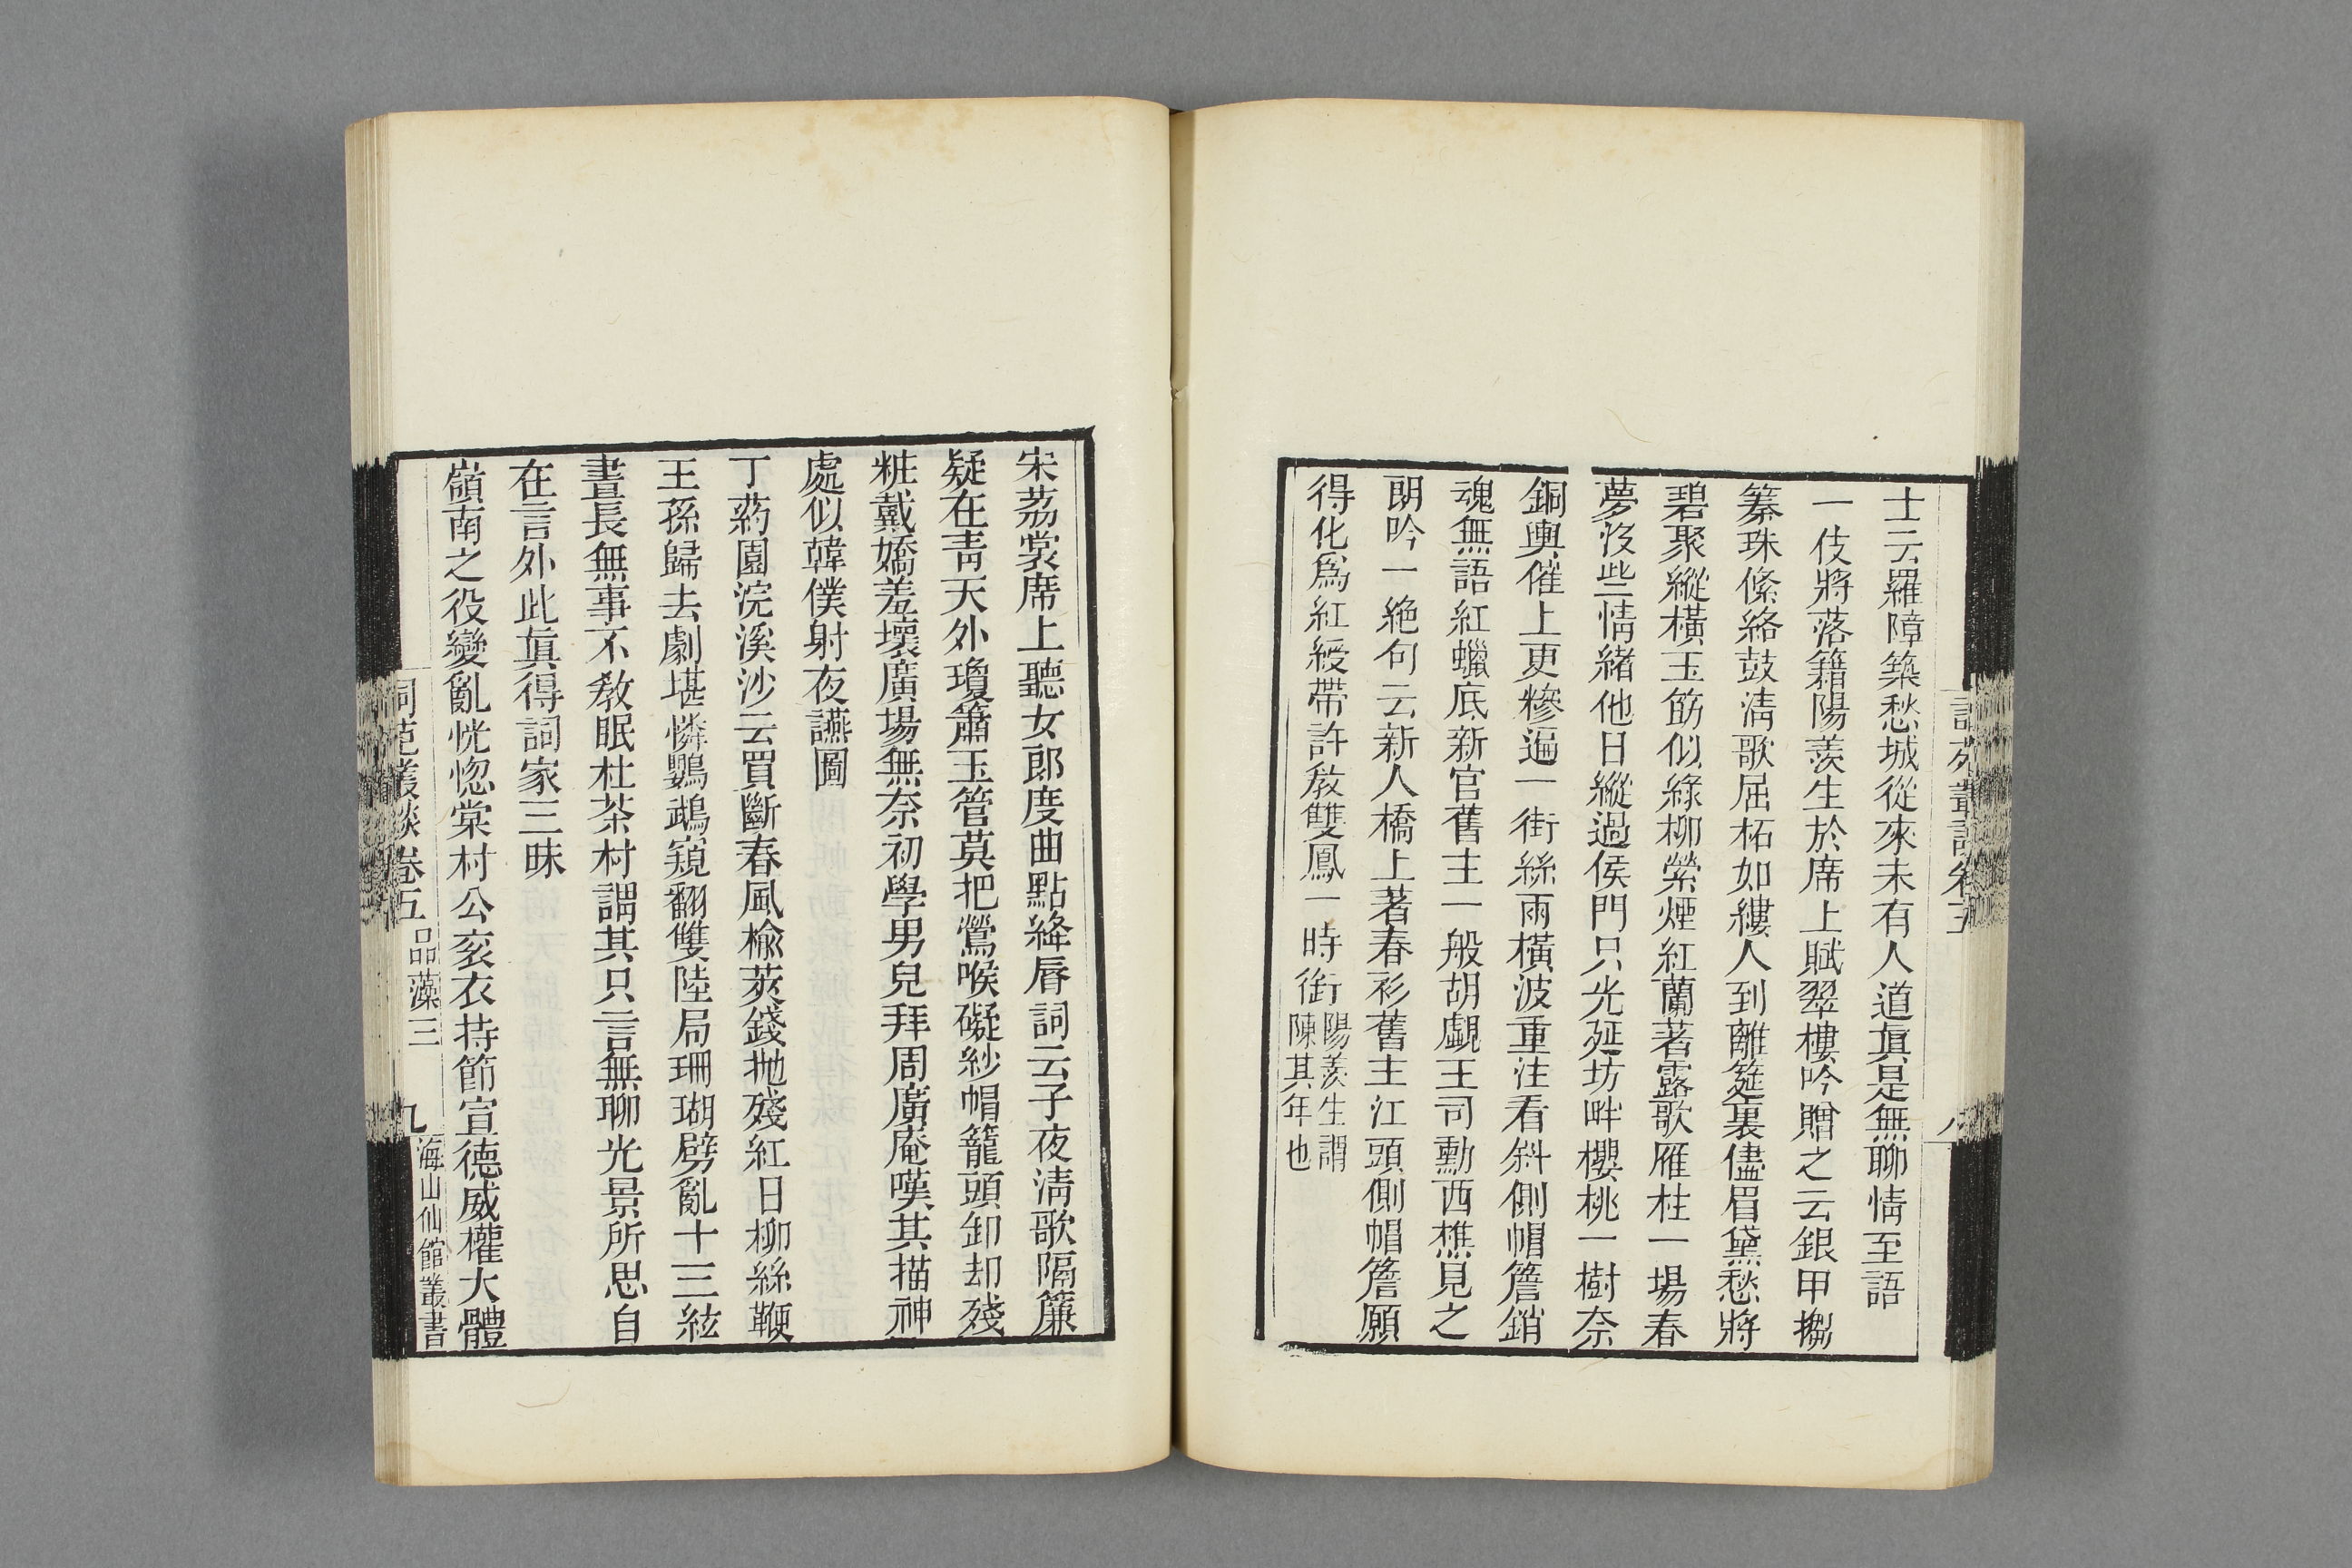 士云羅障築愁城從來未有人道眞是無聊情至語
一伎將落籍陽羨生於席上賦翠樓吟贈之云銀甲搊
纂珠絛絡鼓淸歌屈柘如縷人到離筵裏儘眉黛愁將
碧聚縱橫玉筯似綠柳縈煙紅蘭著露歌雁柱一場春
夢沒些情緒他日縱過侯門只光延坊畔櫻桃一樹奈
銅輿催上更糝遍一街絲雨橫波重注看斜側帽簷銷
魂無語紅蠟底新官舊主一般胡覷王司勳西樵見之
朗吟一絶句云新人橋上著春衫舊主江頭側帽簷願
得化爲紅綬帶許敎雙鳳一時銜陽羨生謂陳其年也
宋荔裳席上聽女郎度曲點絳脣詞云子夜淸歌隔簾
疑在靑天外瓊簫玉管莫把鶯喉礙紗帽籠頭卸却殘
粧戴嬌羞壞廣場無奈初學男兒拜周廣庵嘆其描神
處似韓僕射夜讌圖
丁葯園浣溪沙云買斷春風楡莢錢抛殘紅日柳絲鞭
王孫歸去劇堪憐鸚鵡窺翻雙陸局珊瑚劈亂十三絃
晝長無事不敎眠杜茶村謂其只言無聊光景所思自
在言外此眞得詞家三昧
嶺南之役變亂恍惚棠村公衮衣持節宣德威權大體
詞苑叢談卷五 品藻三 九 海山仙館叢書